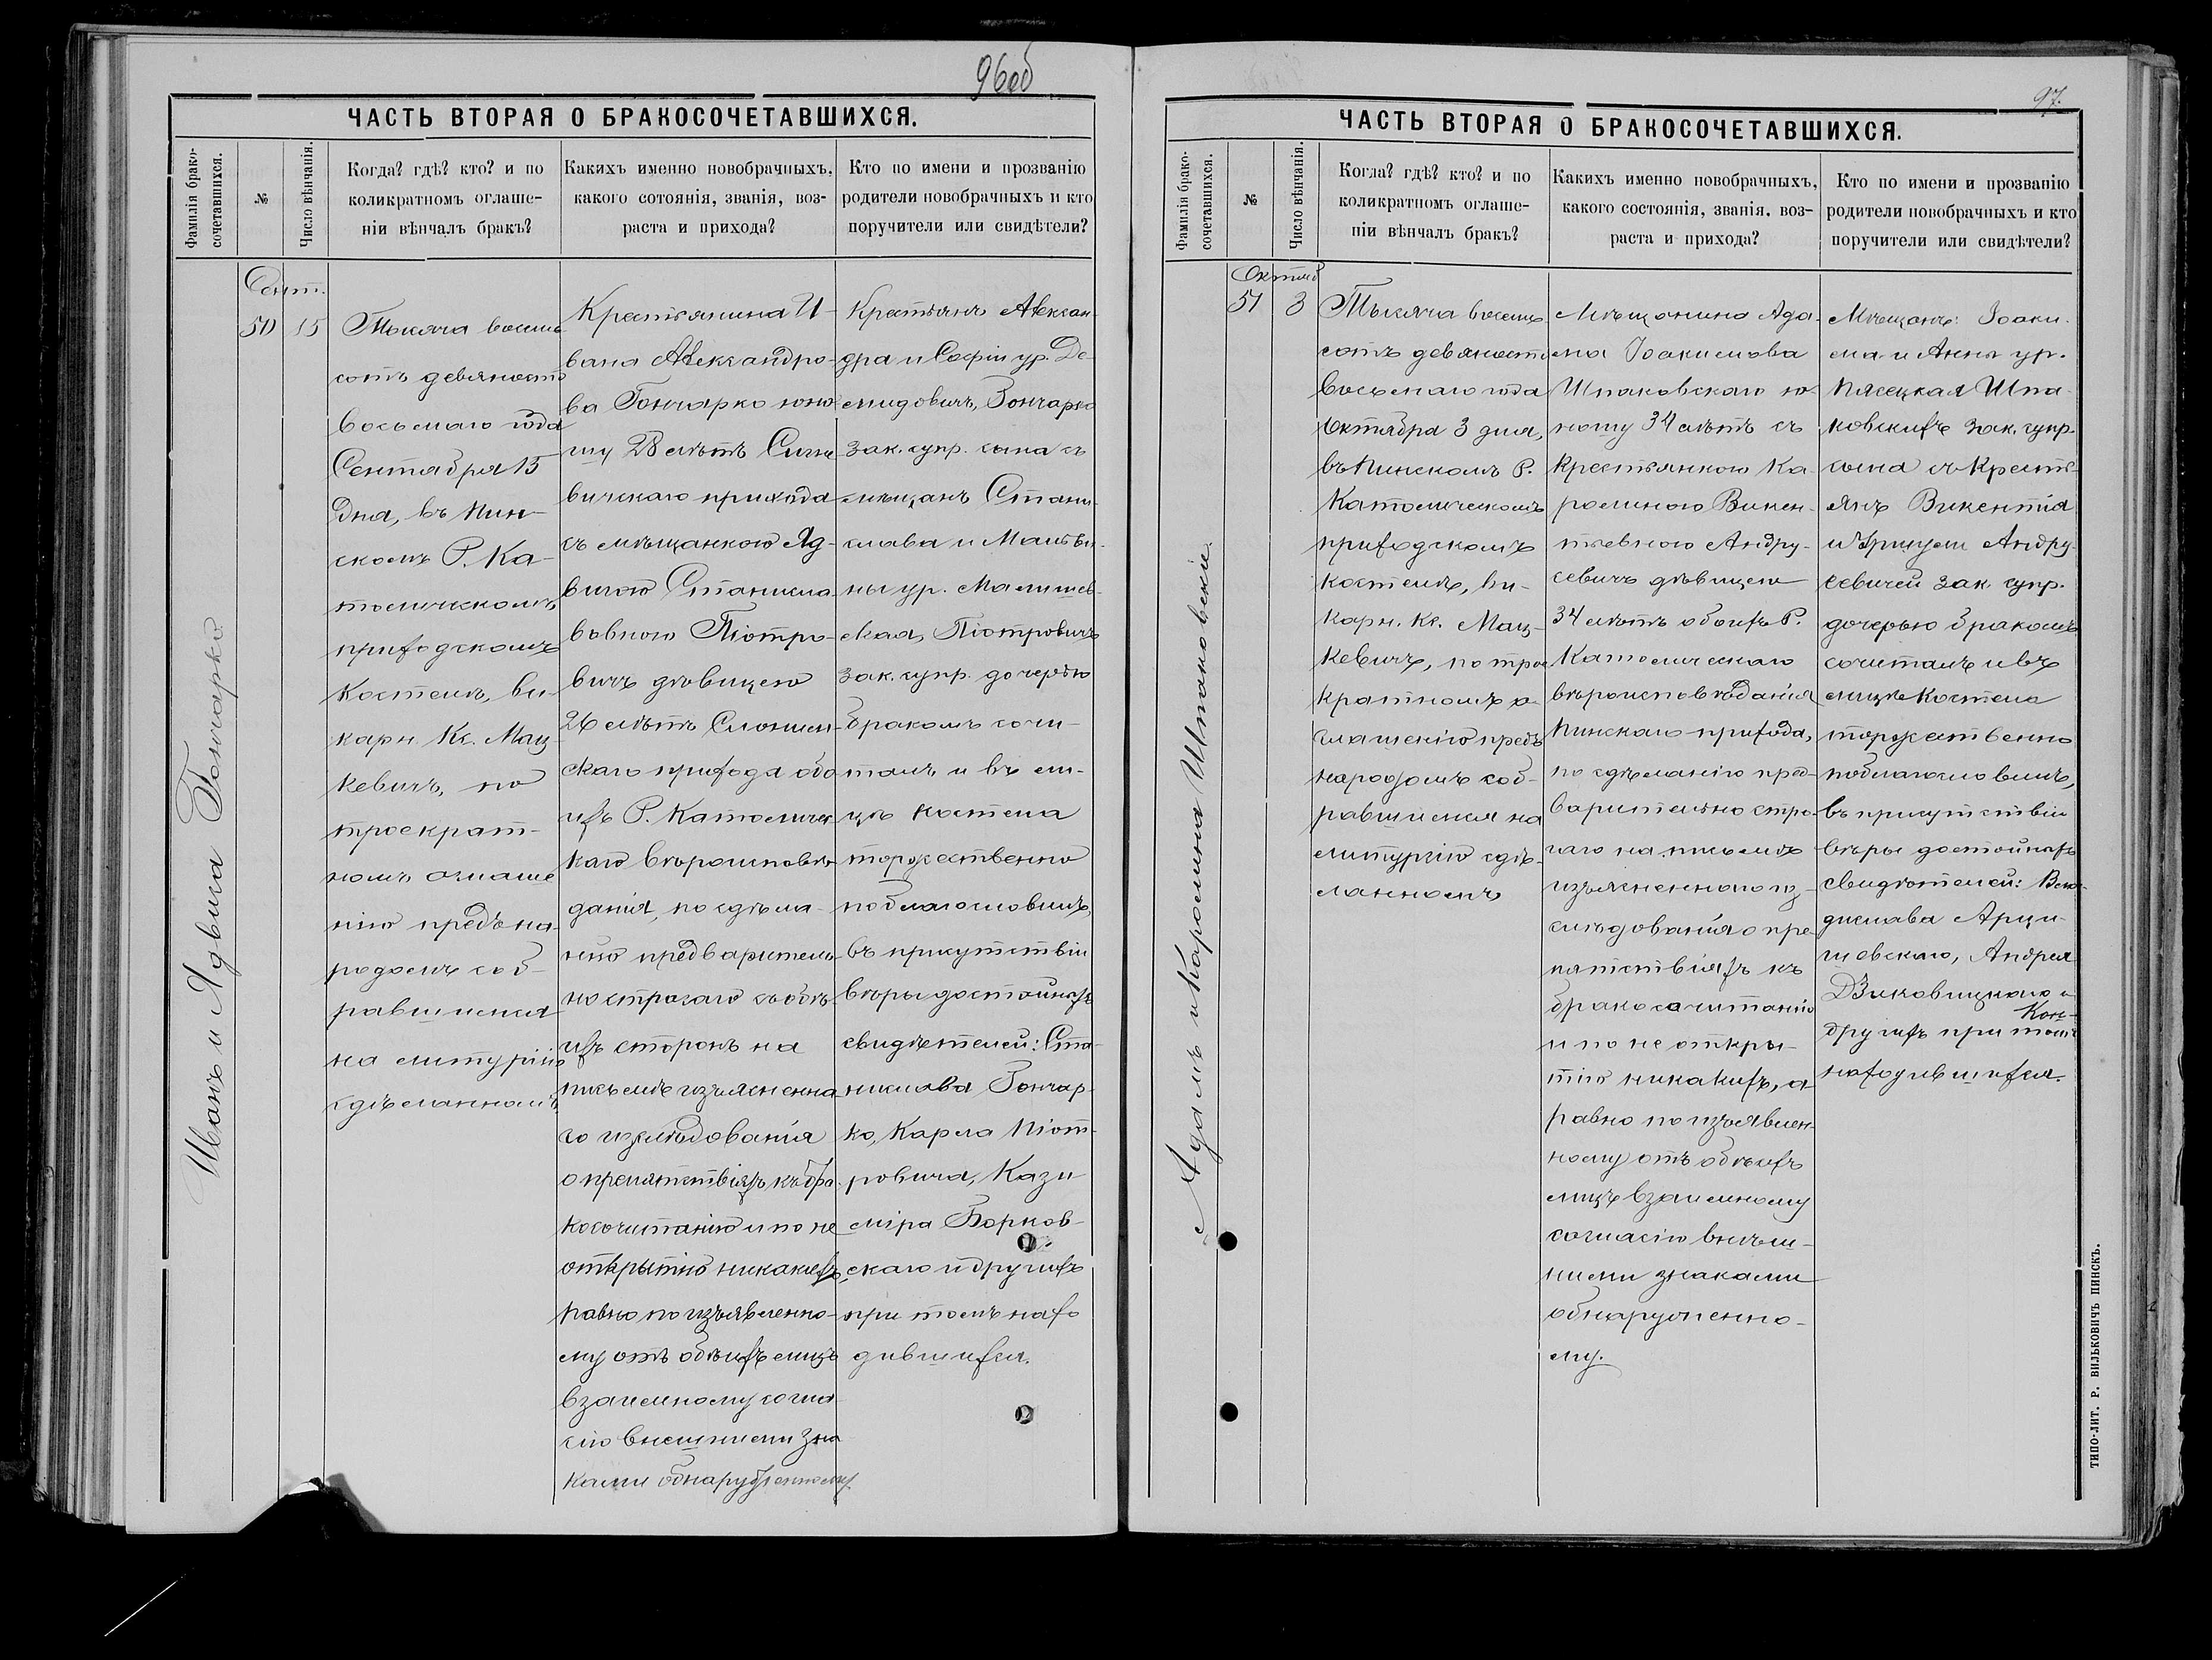 96об
ЧАСТЬ ВТОРАЯ О БРАКОСОЧЕТАВШИХСЯ.
Фамилія брако-
сочетавшихся.
№
Число вѣнчанія.
Когда? гдѣ? кто? и по
коликратномъ оглаше-
ніи вѣнчалъ бракъ?
Какихъ именно новобрачныхъ,
какого сотоянія, званія, воз-
раста и прихода?
Кто по имени и прозванію
родители новобрачныхъ и кто
поручители или свидѣтели?
Иванъ и Ядвига Гончарко
Сент.
50
15
Тысяча восемь
сотъ девяносто
восьмаго года
Сентября 15
дня, въ Пин-
скомъ Р. Ка-
толическомъ
приходскомъ
Костелѣ, ви-
карн. Кс. Мац-
кевичъ, по
троекрат-
номъ оглаше
нію предъ на-
родомъ соб-
равшимся
на литургію
сдѣланномъ
Крестьянина И-
вана Александро-
ва Гончарко юно
шу 28 лѣтъ Сигне
вичскаго прихода
съ мѣщанкою Яд-
вигою Станисла
вовною Піотро-
вичъ дѣвицею
26 лѣтъ Слоним-
скаго прихода обо
ихъ Р. Католичес
каго вѣроисповѣ-
данія, по сдѣла-
нію предваритель-
но строгаго съ обѣ
ихъ сторонъ на
письмѣ изъясненна
го изслѣдованія
о препятствіяхъ къ бра
косочитанію и по не
открытію никакихъ,
равно по изъявленно-
му отъ обѣихъ лицъ
взаимному согла
сію внешними зна
ками обнаруженному
Крестьянъ Алексан-
дра и Софіи ур. Де-
мидовичъ, Гончарко
зак. супр. сына съ
мѣщанъ Стани-
слава и Мальви-
ны ур. Малишев-
ская, Піотровичъ
зак. супр. дочерью
бракомъ сочи-
талъ и въ ли-
цѣ костела
торжественно
поблагословилъ,
въ присутствіи
вѣры достойныхъ
свидѣтелей: Ста-
нислава Гончар-
ко, Карла Піот-
ровича, Кази
міра Борков-
скаго и другихъ
при томъ нахо
дившихся.
97.
ЧАСТЬ ВТОРАЯ О БРАКОСОЧЕТАВШИХСЯ.
Фамилія брако-
сочетавшихся.
№
Число вѣнчанія.
Когда? гдѣ? кто? и по
коликратномъ оглаше-
ніи вѣнчалъ бракъ?
Какихъ именно новобрачныхъ,
какого состоянія, званія, воз-
раста и прихода?
Кто по имени и прозванію
родители новобрачныхъ и кто
поручители или свидѣтели?
Адамъ и Каролина Шпаковскіе.
Октяб
51
3
Тысяча восемь
сотъ девяносто
восьмаго года
Октября 3 дня,
въ Пинскомъ Р.
Католическомъ
приходскомъ
костелѣ, ви-
карн. Кс. Мац-
кевичъ, по трое
кратномъ о-
глашенію предъ
народомъ соб-
равшимся на
литургію сдѣ-
ланномъ
Мѣщанина Ада-
ма Іоакимова
Шпаковскаго ю-
ношу 34 лѣтъ съ
Крестьянкою Ка-
ролиною Викен-
тьевною Андру-
севичъ дѣвицею
34 лѣтъ обоихъ Р.
Католическаго
вѣроисповѣданія
Пинскаго прихода,
по сдѣланію пред-
варительно стро-
гаго на письмѣ
изъясненнаго из-
слѣдованія о пре
пятствіяхъ къ
бракосочитанію
и по не откры-
тію никакихъ, а
равно по изъявлен-
ному отъ обѣихъ
лицъ взаимному
согласію внѣш-
ними знаками
обнаруженно-
му.
Мѣщанъ: Іоаки-
ма и Анны ур.
Пясецкая Шпа-
ковскихъ зак. супр.
сына съ Крестъ-
янъ Викентія
и Уршули Андру-
севичей зак. супр.
дочерью бракомъ
сочиталъ и въ
лицѣ Костела
торжественно
поблагословилъ,
въ присутствіи
вѣры достойныхъ
свидѣтелей: Вла-
дислава Арци-
шевскаго, Андрея
Дзиковицкаго и
другихъ при томъ
находившихся.
ТИПО-ЛИТ. Р. ВИЛЬКОВИЧЪ ПИНСКЪ.